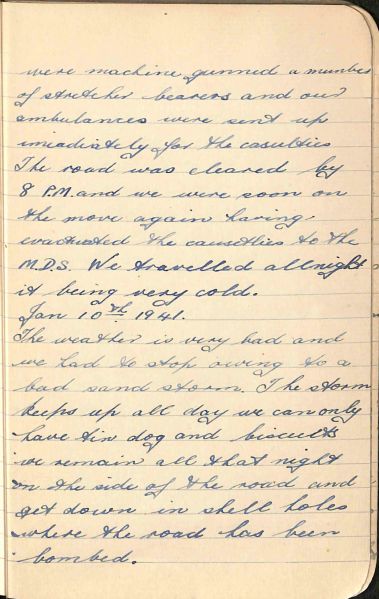 were machine gunned a munber
of stretcher bearers and our
ambulances were sent up
imiadiately for the casulties
The road was cleared by
8 P.M. and we were soon on
the move again having
evactuated the causetlies to the
M.D.S. We travelled all night
it being very cold.
Jan 10th 1941.
The weather is very bad and
we had to stop owing to a
bad sand storm. The storm
keeps up all day we can only
have tin dog and biscuits
we remain all that night
on the side of the road and
get down in shell holes
where the road has been
bombed.